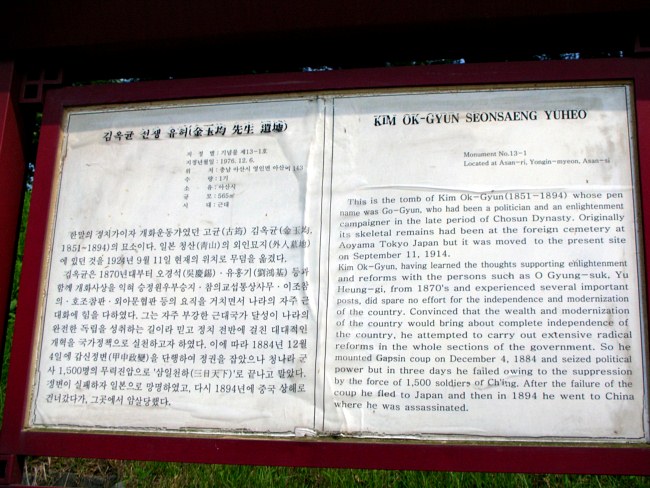 김옥균 선생 유허(金玉均 先生 遺墟)
지 정 별 : 기념물 제13-1호
지정년월일 : 1976. 12. 6.
위 치 : 충남 아산시 영인면 아산리
수 량 : 1기
소 유 : 아산시
규 모 : 565㎡
시 대 : 근대
한말의 정치가이자 개화운동가였던 고균(古筠) 김옥균(金玉均,
1851~1894)의 묘소이다. 일본 청산(靑山)의 외인묘지(外人墓地)
에 있던 것을 1924년 9월 11일 현재의 위치로 무덤을 옮겼다.
김옥균은 1870년대부터 오경석(吳慶錫)·유홍기(劉鴻基) 등과
함께 개화사상을 익혀 승정원우부승지·참의교섭통상사무·이조참
의·호조참판·외아문협판 등의 요직을 거치면서 나라의 자주 근
대화에 힘을 다하였다. 그는 자주 부강한 근대국가 달성이 나라의
완전한 독립을 성취하는 길이라 믿고 정치 전반에 걸친 대대적인
개혁을 국가정책으로 실천하고자 하였다. 이에 따라 1884년 12월
4일에 갑신정변(甲申政變)을 단행하여 정권을 잡았으나 청나라 군
사 1,500명의 무력진압으로 '삼일천하(三日天下)'로 끝나고 말았다.
정변이 실패하자 일본으로 망명하였고, 다시 1894년에 중국 상해로
건너갔다가, 그곳에서 암살당했다.
KIM OK-GYUN SEONSAENG YUHEO
Monument No.13-1
Located at Asan-ri, Yongin-myeon, Asan-si
This is the tomb of Kim Ok-Gyun(1851-1894) whose pen
name was Go-Gyun, who had been a politician and an enlightenment
campaigner in the late period of Chosun Dynasty. Originally
its skeletal remains had been at the foreign cemetery at
Aoyama Tokyo Japan but it was moved to the present site
on September 11, 1914.
Kim Ok-Gyun, having learned the thoughts supporting enlightenment
and reforms with the persons such as O Gyung-suk, Yu
Heung-gi, from 1870's and experienced several important
posts, did spare no effort for the independence and modernization
of the country. Convinced that the wealth and modernization
of the country would bring about complete independence of
the country, he attempted to carry out extensive radical
reforms in the whole sections of the government. So he
mounted Gapsin coup on December 4, 1884 and seized political
power but in three days he failed owing to the suppression
by the force of 1,500 soldiers of Ch'ing. After the failure of the
coup he fled to Japan and then in 1894 he went to China
where he was assassinated.